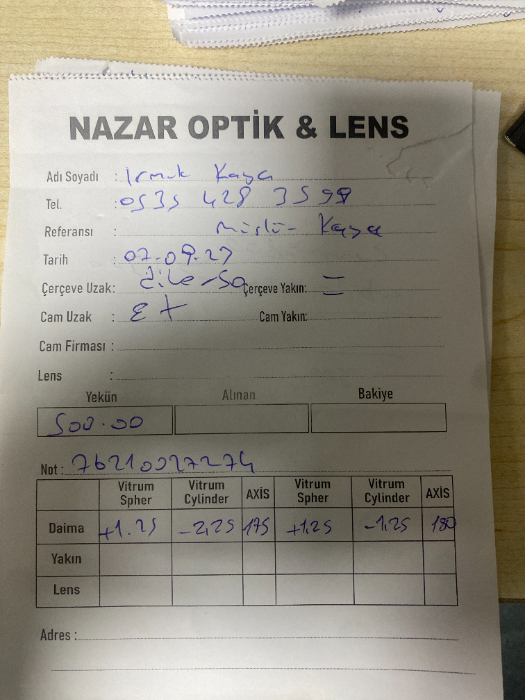 NAZAR OPTİK & LENS
Adı Soyadı : Irmak Kaya
Tel. : 0535 428 3599
Referansı : Kaya
Tarih : 07.09.27
Çerçeve Uzak: Çerçeve Yakın: =
Cam Uzak : Cam Yakın:
Cam Firması :
Lens :
Yekün Alınan Bakiye
500.00
Not : 76210027274
Vitrum Spher Vitrum Cylinder AXİS Vitrum Spher Vitrum Cylinder AXİS
Daima +1.25 -2,25 175 +1,25 -1,25 180
Yakın
Lens
Adres :